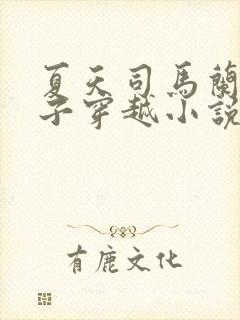 夏天司馬蘭
子穿越小說
有鹿文化